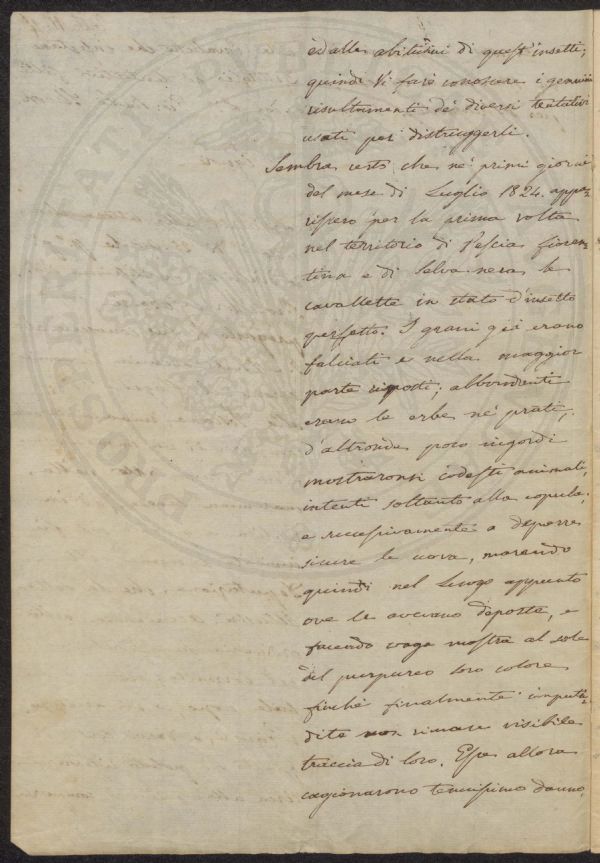 e dalle abitudini di quest'insetti;
quindi Vi farò conoscere i genuini
risultamenti de' diversi tentativi
usati per distruggerli.
Sembra certo che ne' primi giorni
del mese di Luglio 1824. appa=
rissero per la prima volta
nel territorio di Pescia fioren=
tina e di Selva nera le
cavallette in stato d'insetto
perfetto. I grani già erano
falciati e nella maggior
parte riposti; abbondanti
erano le erbe ne' prati,
d'altronde poco ingordi
mostraronsi codesti animali,
intenti soltanto alla copula,
e successivamente a deporre
sicure le uova, morendo
quindi nel luogo appunto
ove le aveano deposte, e
facendo vaga mostra al sole
del purpureo loro colore
finchè finalmente imputri=
dite non rimase visibile
traccia di loro. Esse allora
cagionarono tenuissimo danno,